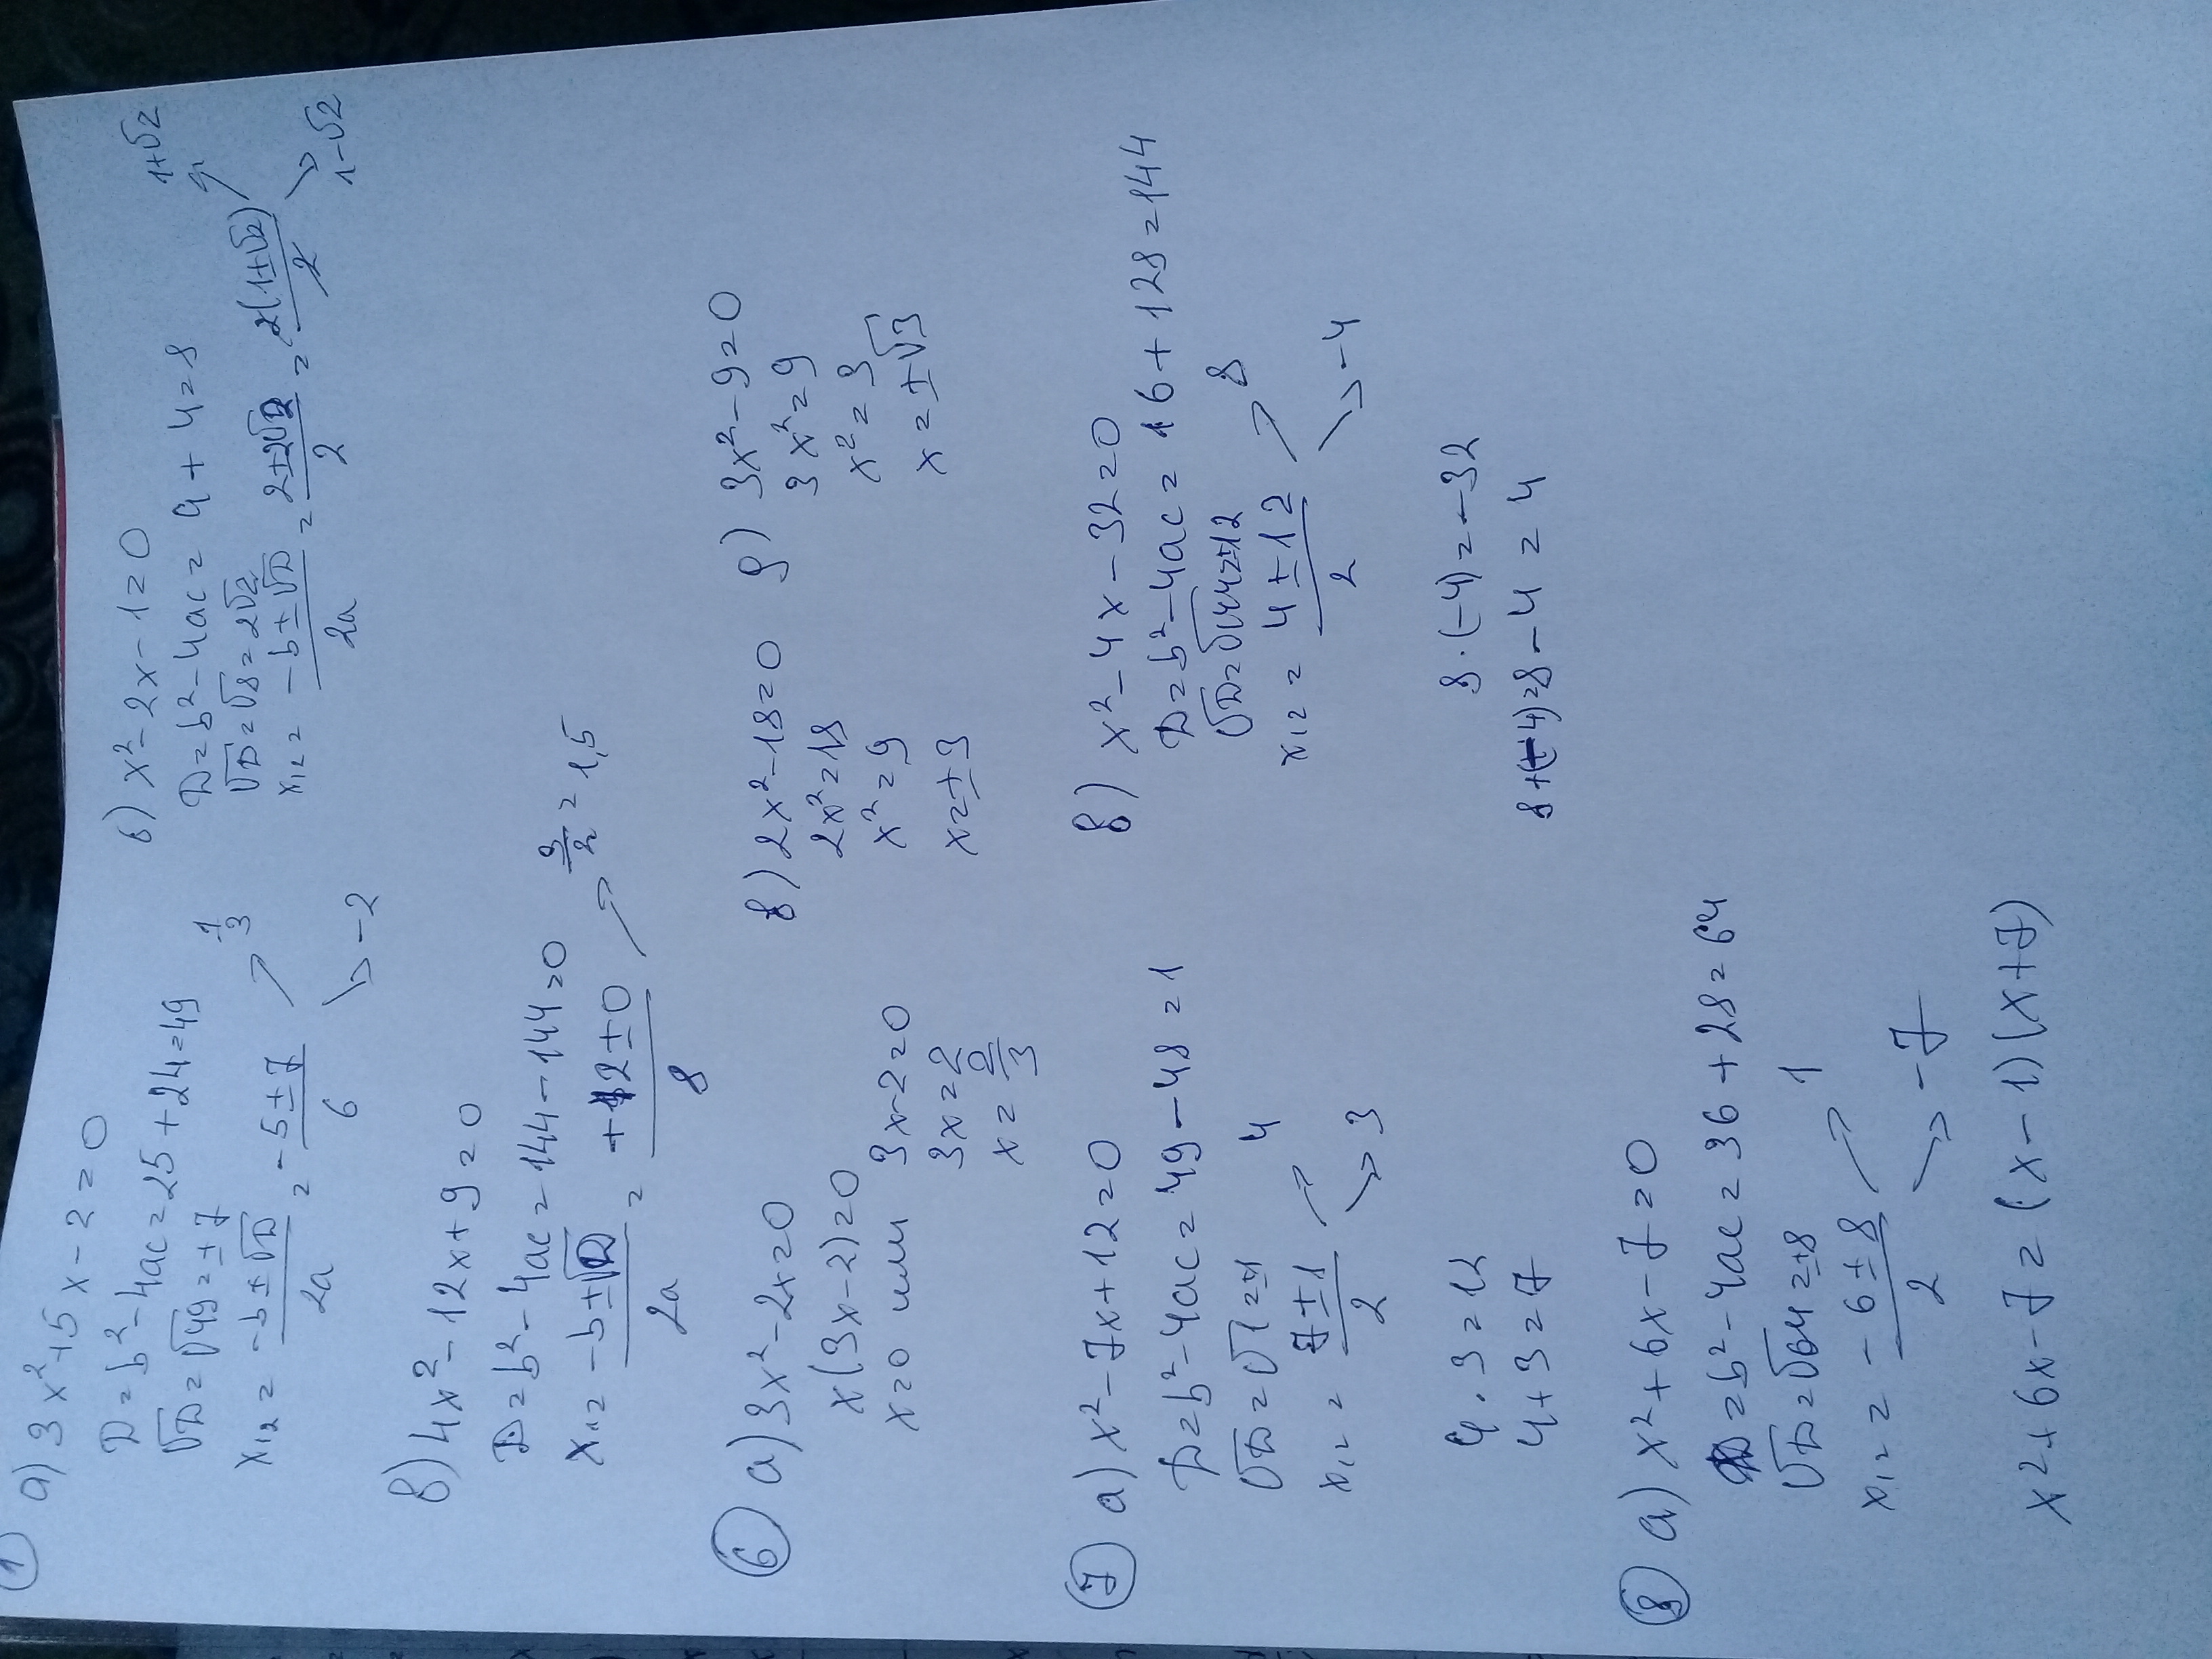 1
а) 3x²+5x-2=0
D=b²-4ac=25+24=49
√D=√49=±7
x₁₂=(-b±√D)/2a=(-5±7)/6 ↗ 1/3 ↘ -2
б) x²-2x-1=0
D=b²-4ac=4+4=8
√D=√8=2√2
x₁₂=(-b±√D)/2a=(2±2√2)/2=2(1±√2)/2 ↗ 1+√2 ↘ 1-√2
в) 4x²-12x+9=0
D=b²-4ac=144-144=0
x₁₂=(-b±√D)/2a=(+12±0)/8 ↗ 3/2=1,5
6
а) 3x²-2x=0
x(3x-2)=0
x=0 или 3x-2=0
3x=2
x=2/3
в) 2x²-18=0
2x²=18
x²=9
x=±3
д) 3x²-9=0
3x²=9
x²=3
x=±√3
7
а) x²-7x+12=0
D=b²-4ac=49-48=1
√D=√1=±1
x₁₂=(7±1)/2 ↗ 4 ↘ 3
4·3=12
4+3=7
в) x²-4x-32=0
D=b²-4ac=16+128=144
√D=√144=±12
x₁₂=(4±12)/2 ↗ 8 ↘ -4
8·(-4)=-32
8+(-4)=8-4=4
8
а) x²+6x-7=0
D=b²-4ac=36+28=64
√D=√64=±8
x₁₂=(-6±8)/2 ↗ 1 ↘ -7
x²+6x-7=(x-1)(x+7)